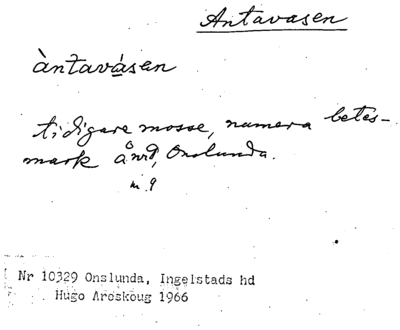 Antavasen
àntavásen
tidigare mosse, numera betes-
mark å nr 9, Onslunda.
m. 9
Nr 10329 Onslunda, Ingelstads hd
Hugo Areskoug 1966